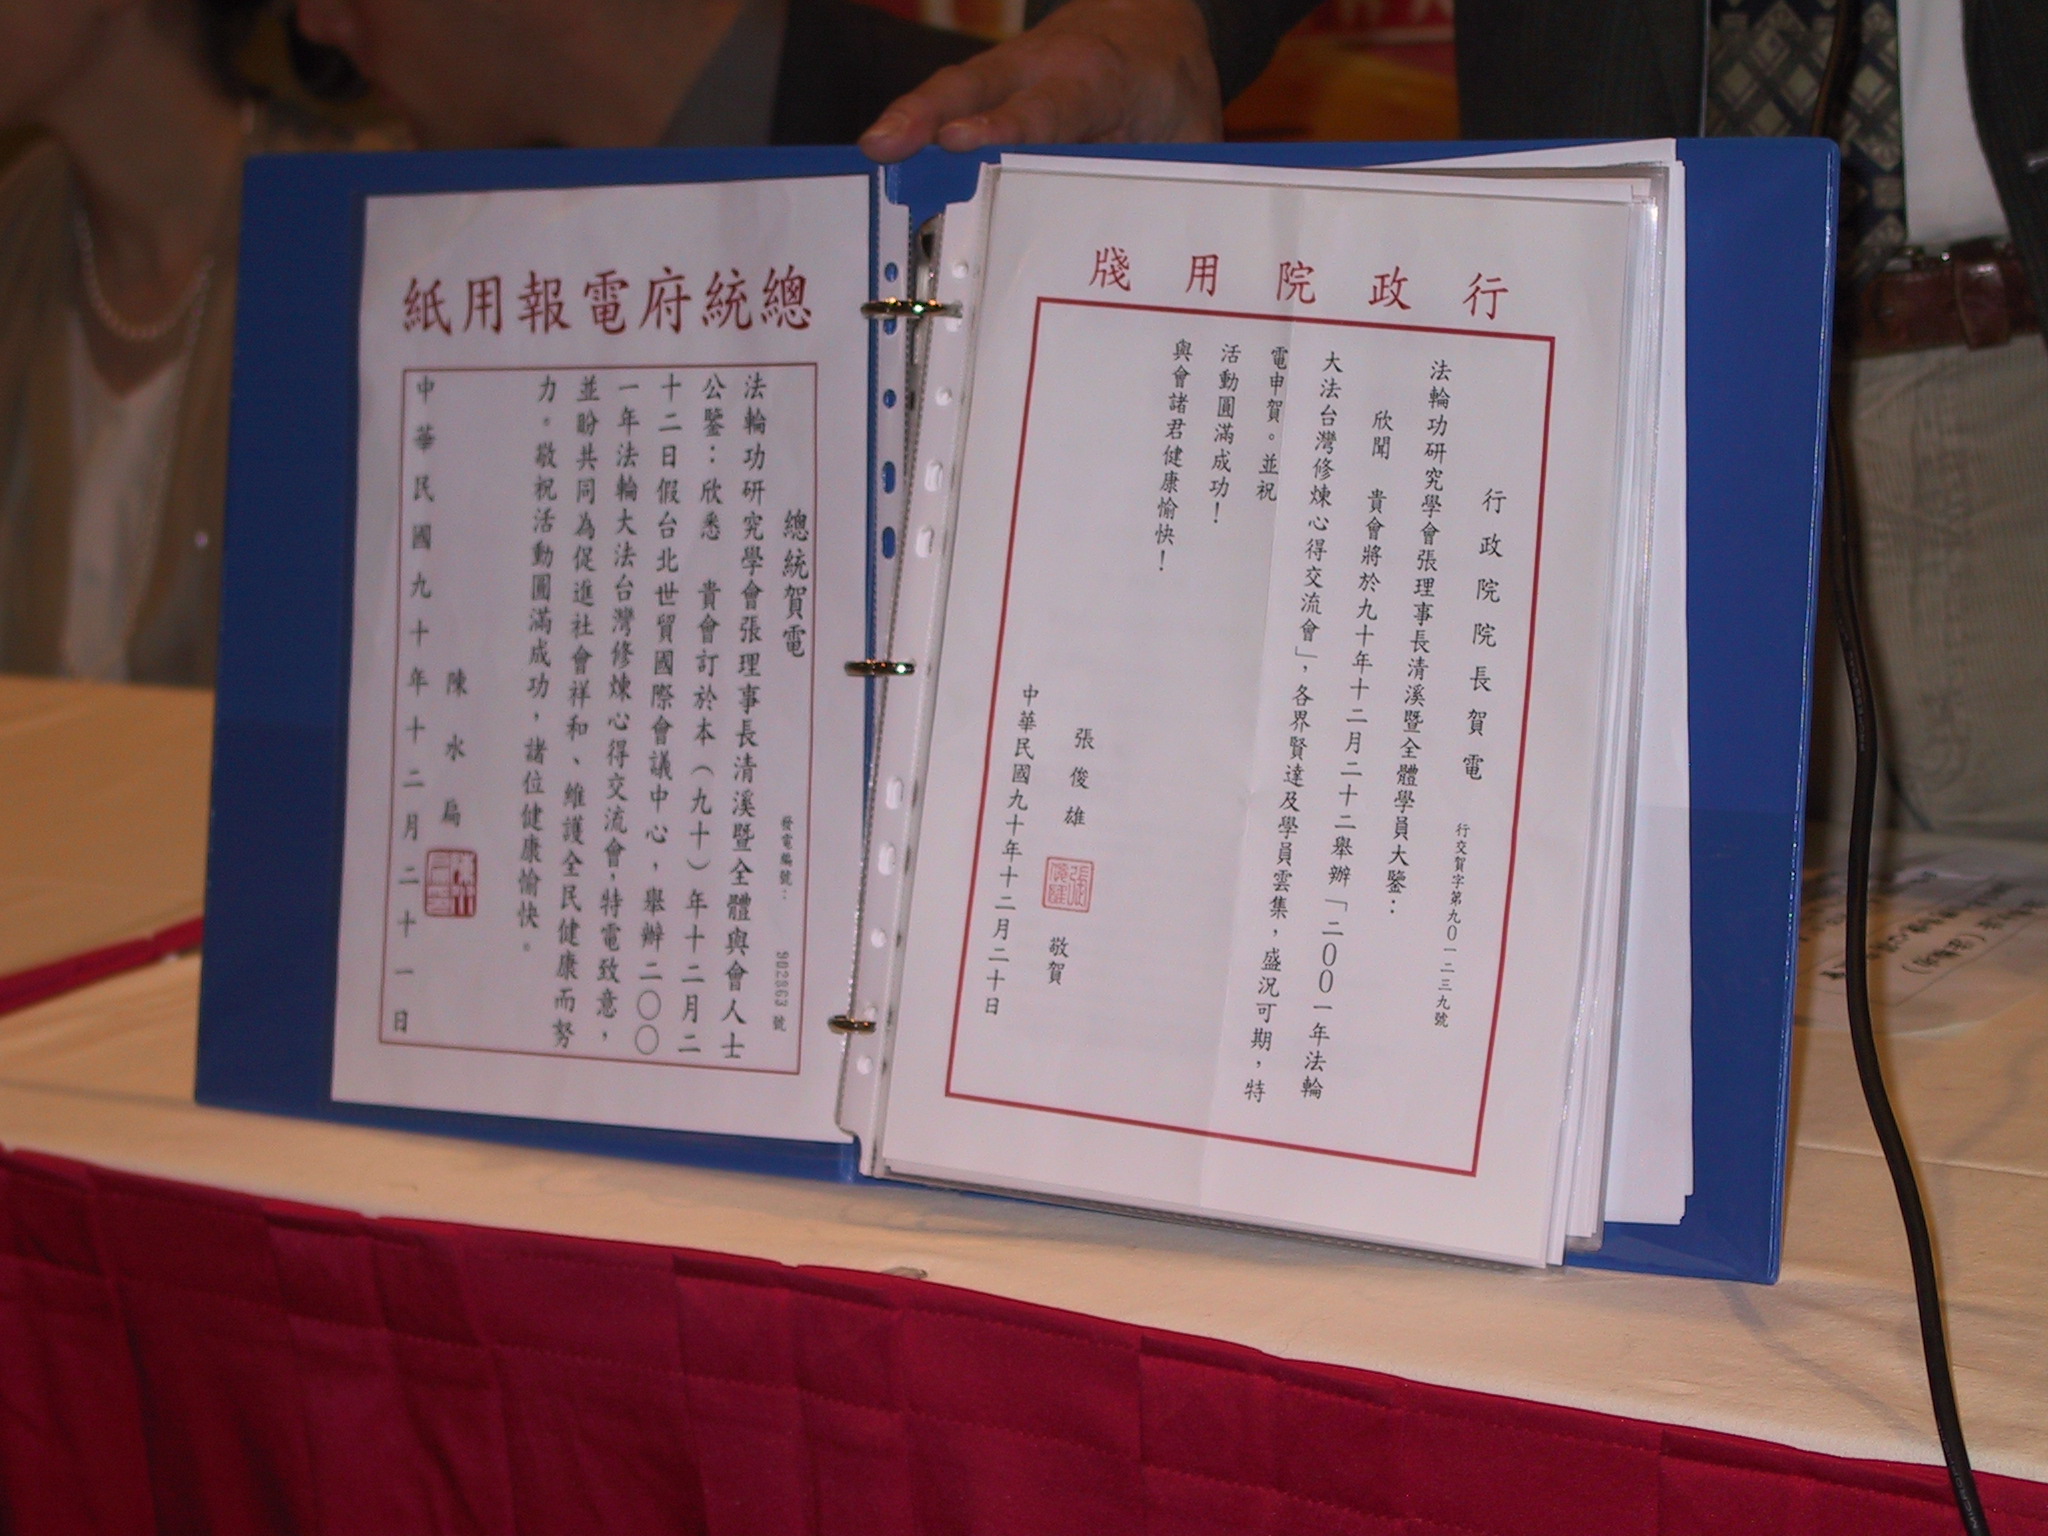 總統府電報用紙
總統賀電
發電編號： 902863 號
法輪功研究學會張理事長清溪暨全體與會人士
公鑒：欣悉　貴會訂於本（九十）年十二月二
十二日假台北世貿國際會議中心，舉辦二〇〇
一年法輪大法台灣修煉心得交流會，特電致意，
並盼共同為促進社會祥和、維護全民健康而努
力。敬祝活動圓滿成功，諸位健康愉快。
陳水扁
中華民國九十年十二月二十一日
行政院用牋
行政院院長賀電
行交賀字第九０一二三九號
法輪功研究學會張理事長清溪暨全體學員大鑒：
欣聞　貴會將於九十年十二月二十二舉辦「二００一年法輪
大法台灣修煉心得交流會」，各界賢達及學員雲集，盛況可期，特
電申賀。並祝
活動圓滿成功！
與會諸君健康愉快！
張俊雄　敬賀
中華民國九十年十二月二十日